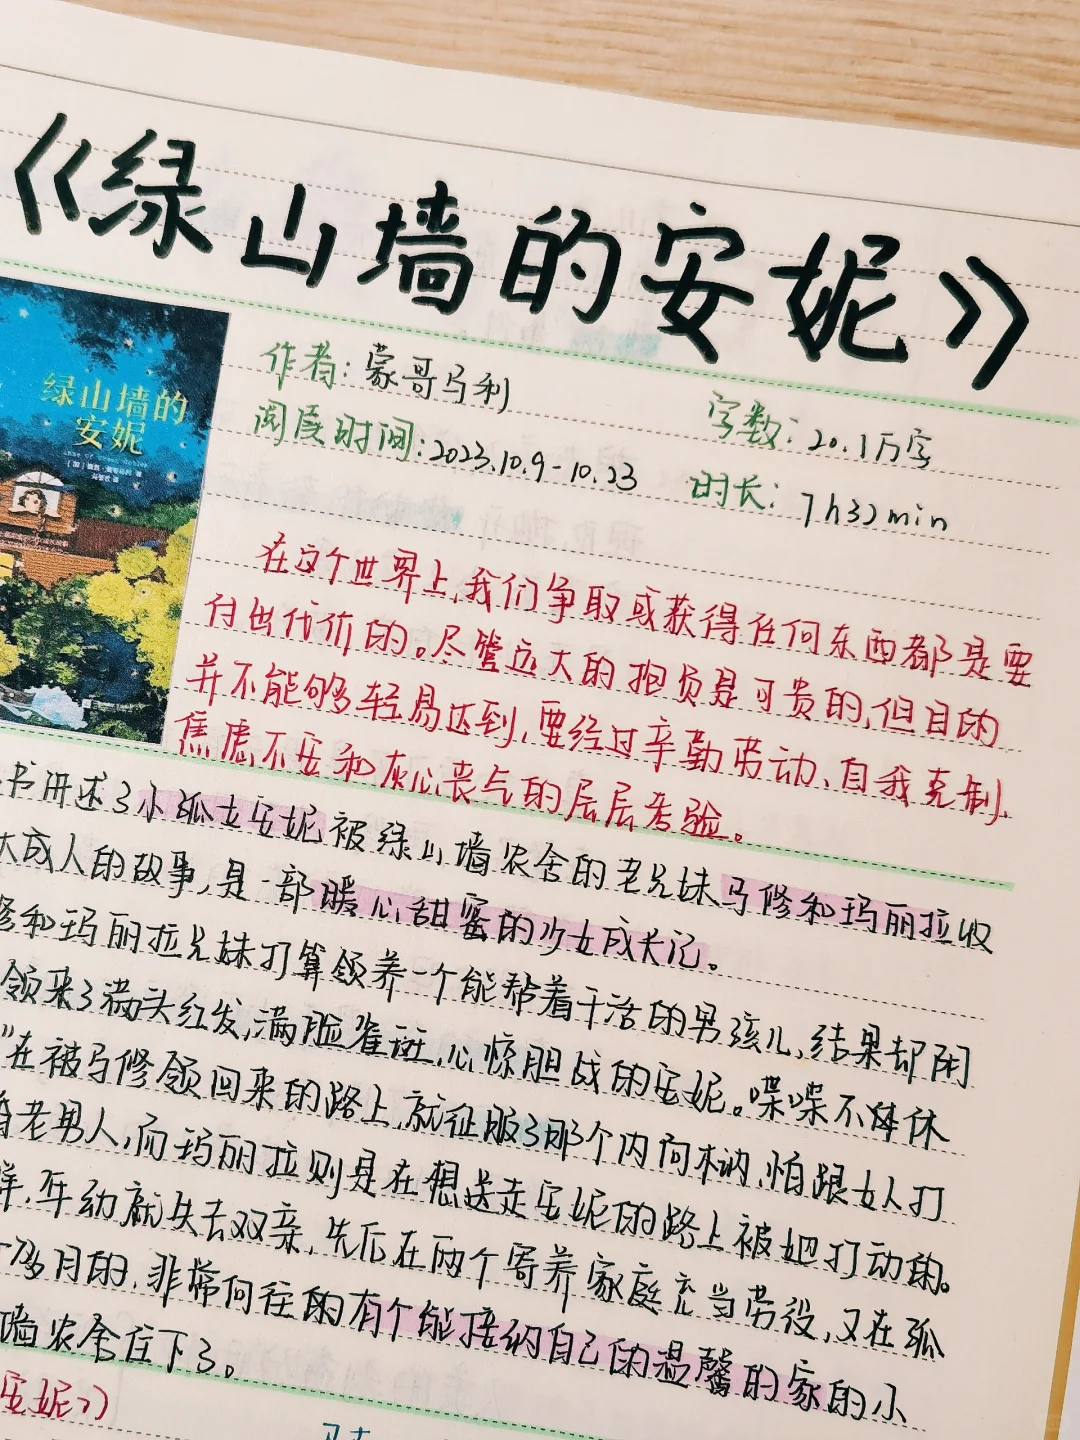 《绿山墙的安妮》
绿山墙的
安妮
作者:蒙哥马利
字数:20.1万字
阅读时间:2023.10.9-10.23
时长:7h32min
在这个世界上,我们争取或获得任何东西都是要
付出代价的。尽管远大的抱负是可贵的,但目的
并不能够轻易达到,要经过辛勤劳动、自我克制、
焦虑不安和灰心丧气的层层考验。
书讲述了小孤女安妮被绿山墙农舍的老兄妹马修和玛丽拉收
大成人的故事,是一部暖心甜蜜的少女成长记。
修和玛丽拉兄妹打算领养一个能帮着干活的男孩儿,结果却阴
领来了满头红发,满脸雀斑,心惊胆战的安妮。喋喋不休休
"在被马修领回来的路上,就征服了那个内向木讷,怕跟女人打
老男人,而玛丽拉则是在想送走安妮的路上被她打动的。
样,年幼就失去双亲,先后在两个寄养家庭充当劳役,又在孤
个多月的,非常向往的有个能接纳自己的温馨的家的小
墙农舍住下了。
安妮》